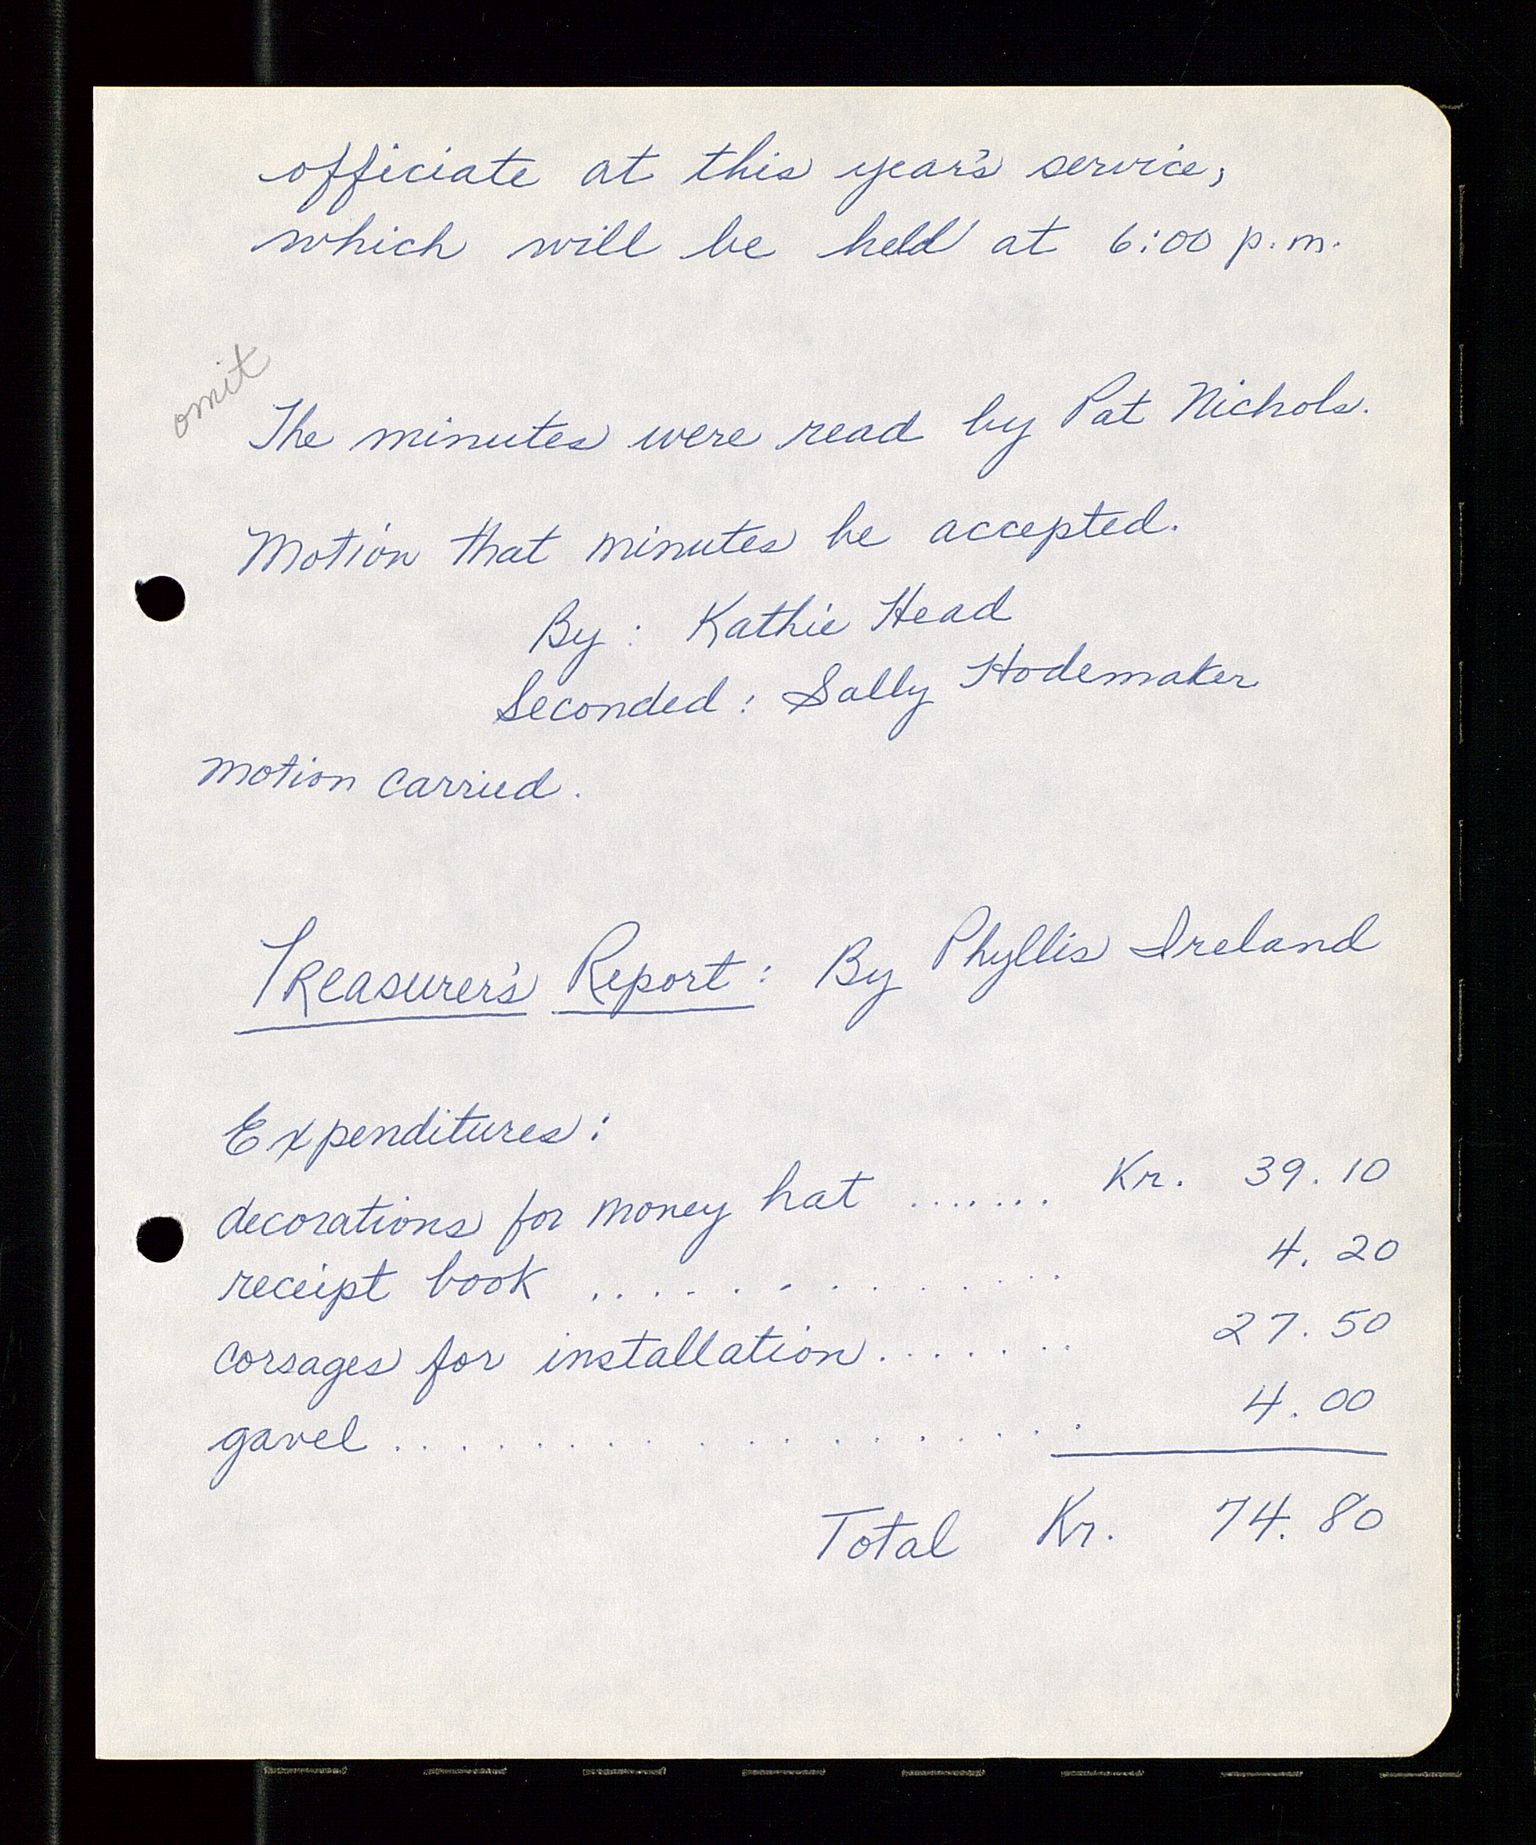 officiate at this year's service,
which will be held at 6:00 p.m.
omit
The minutes were read by Pat Nichols.
Motion that minutes be accepted.
By: Kathie Head
Seconded: Sally Hodemaker
Motion carried.
Treasurer's Report: By Phyllis Ireland
Expenditures:
decorations for money hat ....... Kr. 39.10
receipt book ........... 4.20
corsages for installation....... 27.50
gavel ................ 4.00
Total Kr. 74.80